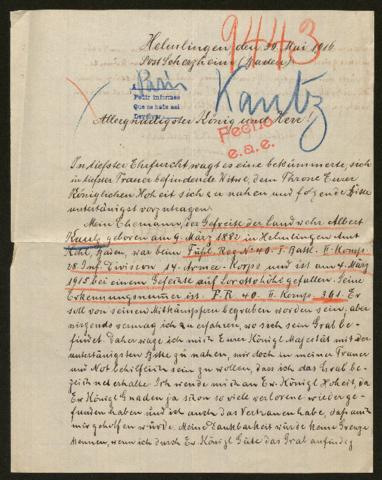 9443
Helmlingen den 30. Mai 1916
Post Scherzheim (Baden)
París
Pedir informes
Que se hate así
Kautz
Allergnädigster König und Herr!
Fecho
e.a.e.
In tiefster Ehrfurcht wagt es eine bekümmerte, sich
in tiefster Trauer befindende Witwe, dem Throne Eurer
Königlichen Hoheit sich zu nahen und folgende Bitte
untertänigst vorzutragen.
Mein Ehemann, der Gefreite der Landwehr Albert
Kautz geboren am 9. März 1882 in Helmlingen Amt
Kehl, Baden, war beim Füsl. Reg. No 40. I. Batl. II. Komp.
28. Inf. Division 14. Armee-Korps und ist am 4. März
1915 bei einem Gefechte auf Lorettohöhe gefallen. Seine
Erkennungsnummer ist F.R. 40. II. Komp. 361. Er
soll von seinen Mitkämpfern begraben worden sein, aber
nirgends vermag ich zu erfahren, wo sich sein Grab be-
findet. Daher wage ich mich Eurer Königl. Majestät mit der
untertänigsten Bitte zu nahen, mir doch in meiner Trauer
und Not behilflich sein zu wollen, dass ich das Grab be-
zeichnet erhalte. Ich wende mich an Ew. Königl. Hoheit, da
Ew. Königl. Gnaden ja schon so viele verlorene wieder ge-
funden haben und ich auch das Vertrauen habe, daß auch
mir geholfen würde. Meine Dankbarkeit würde keine Grenze
kennen, wenn ich durch Ew. Königl. Güte das Grab ausfindig